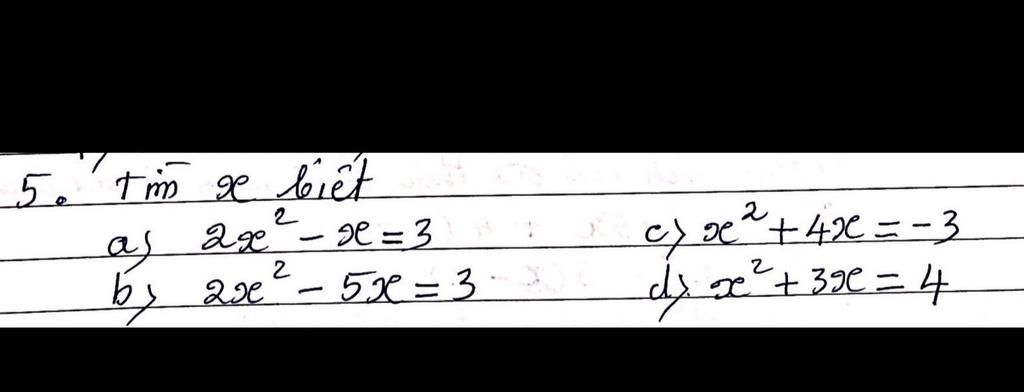 5. Tìm x biết
a) 2x² - x = 3 c) x² + 4x = -3
b) 2x² - 5x = 3 d) x² + 3x = 4